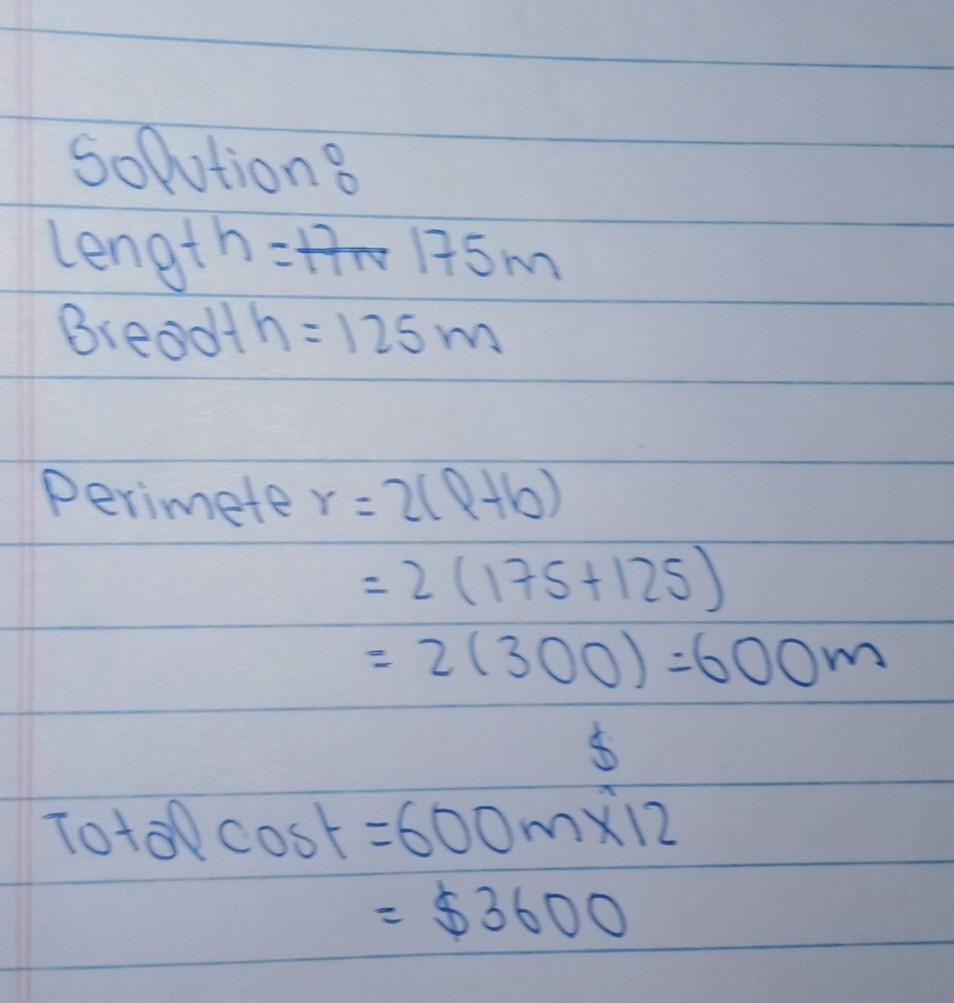 Solution:
Length = 175m
Breadth = 125m
Perimeter = 2(l+b)
= 2(175+125)
= 2(300) = 600m
$
Total cost = 600m x 12
= $3600